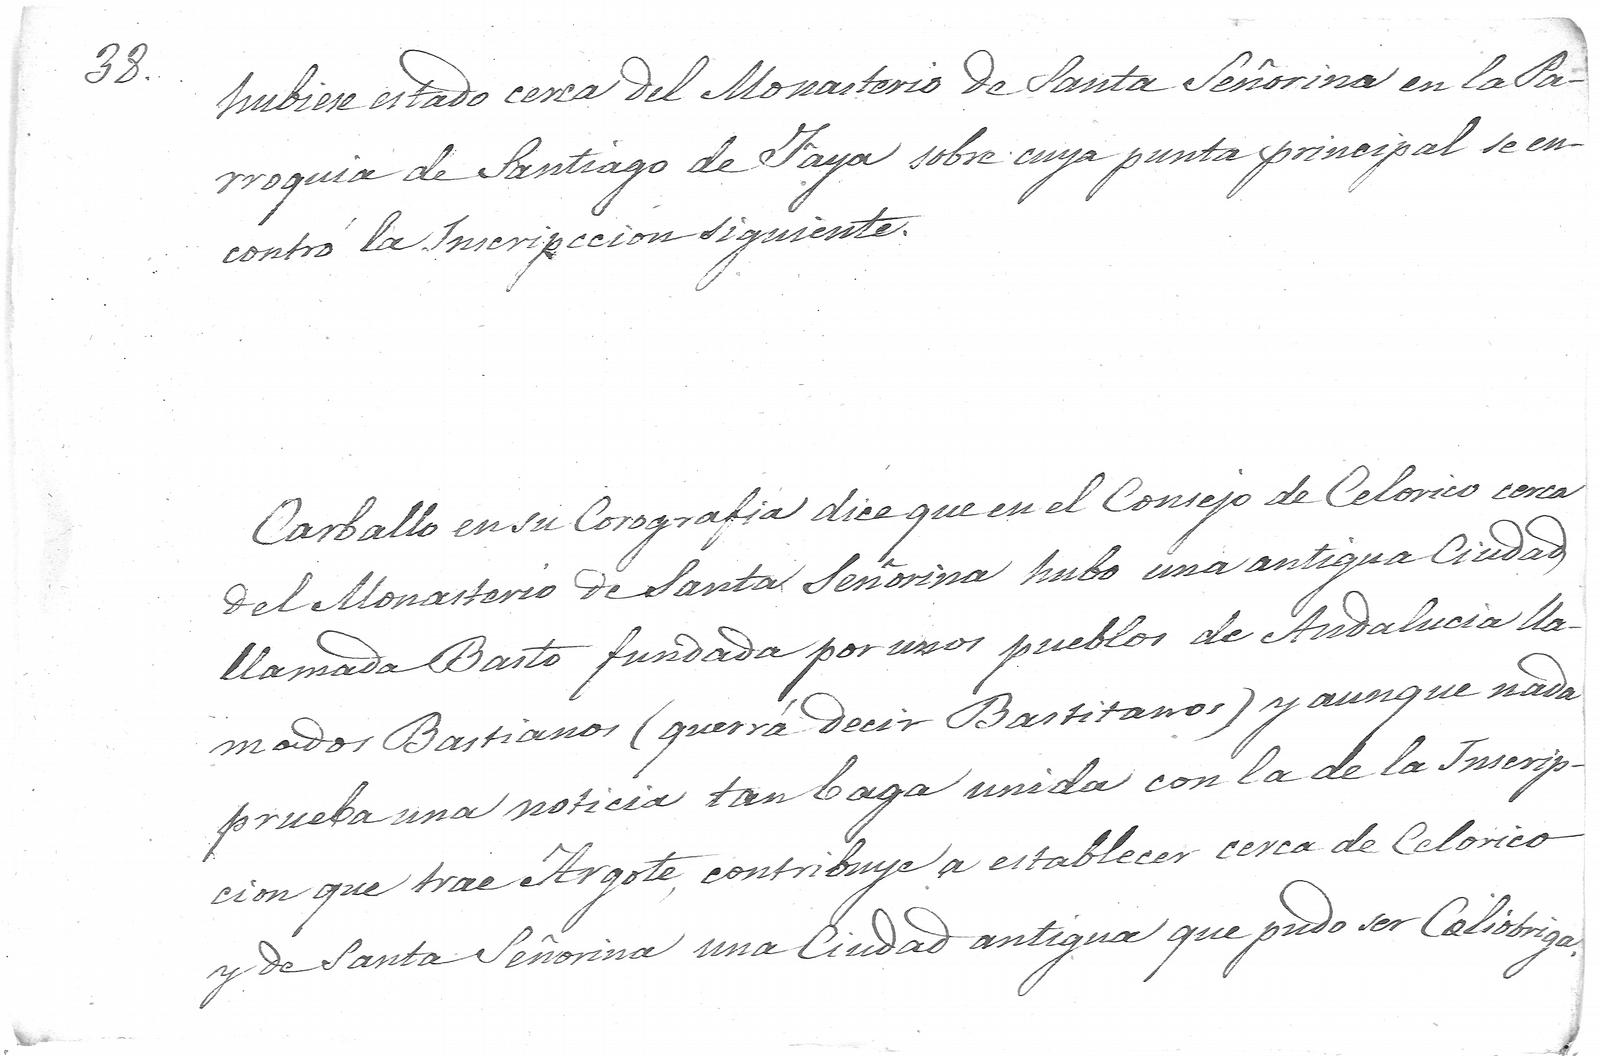 38.
hubiese estado cerca del Monasterio de Santa Señorina en la Pa-
rroquia de Santiago de Faya sobre cuya punta principal se en-
contró la Inscripccion siguiente.
Carballo en su Corografia dice que en el Consejo de Celorico cerca
del Monasterio de Santa Señorina hubo una antigua Ciudad
llamada Basto fundada por unos pueblos de Andalucia lla-
mados Bastianos (querrá decir Bastitanos) y aunque nada
prueba una noticia tan baga unida con la de la Inscrip-
cion que trae Argote, contribuye a establecer cerca de Celorico
y de Santa Señorina una Ciudad antigua que pudo ser Celiobriga.